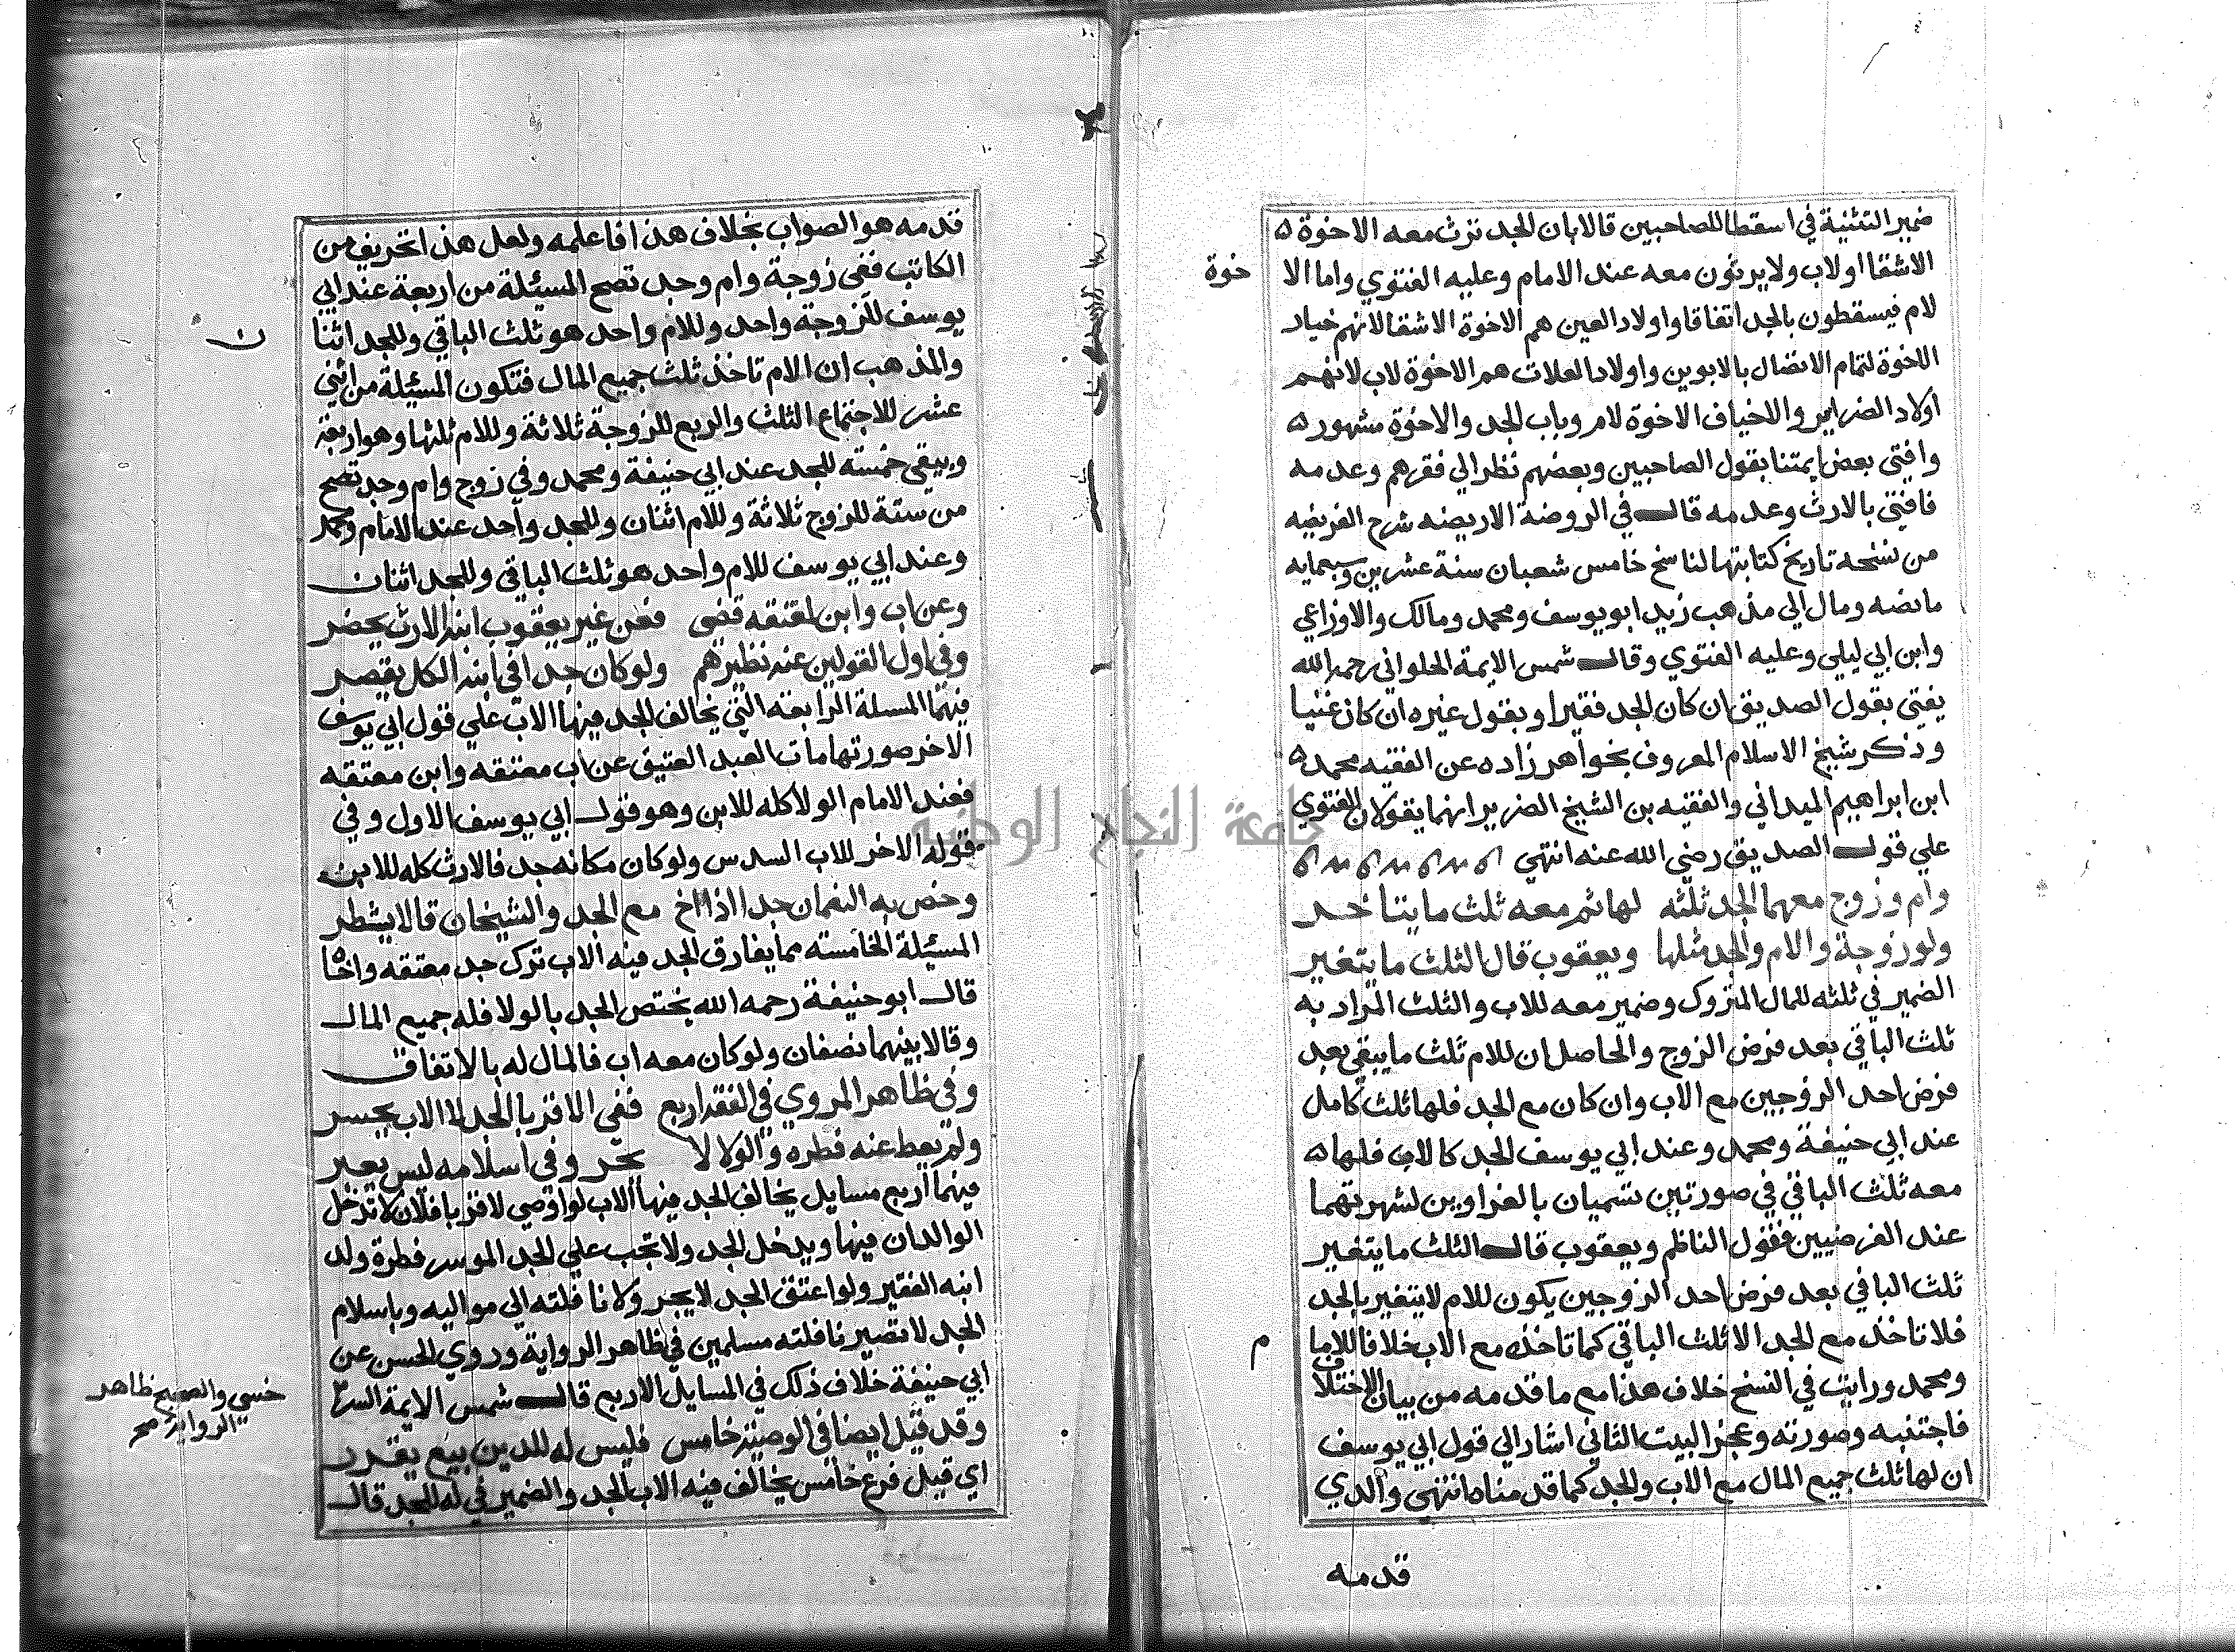 ضمير التثنية في اسقطا للصاحبين قالا بان الجد ترث معه الاخوة
الاشقا او لاب ولا يرثون معه عند الامام وعليه الفتوي واما الا
خوة
لام فيسقطون بالجد اتفاقا واولاد العين هم الاخوة الاشقا لانهم خيار
الاخوة لتمام الاتصال بالابوين واولاد العلات هم الاخوة لاب لانهم
اولاد الضراير والاخياف الاخوة لام وباب الجد والاخوة مشهور
وافتي بعض ايمتنا بقول الصاحبين وبعضهم نظر الي فقرهم وعدمه
فافتي بالارث وعدمه قال في الروضة الاريضه شرح الفريضه
من نسخه تاريخ كتابتها لناسخ خامس شعبان سنة عشرين وسبمايه
ما نصه ومال الي مذهب زيد ابو يوسف ومحمد ومالك والاوزاعي
وابن ابي ليلي وعليه الفتوي وقال شمس الايمة الحلواني رحمه الله
يفتي بقول الصديق ان كان الجد فقيرا وبقول غيره ان كان غنيا
وذكر شيخ الاسلام المعروف بخواهر زاده عن الفقيه محمد
ابن ابراهيم الميداني والفقيه بن الشيخ الضرير انهما يقولان الفتوي
علي قول الصديق رضي الله عنه انتهي
وام وزوج معهما الجد ثلثه لها ثم معه ثلث ما يتاخد
ولو زوجة والام والجد مثلها ويعقوب قال الثلث ما يتغير
الضمير في ثلثه للمال المتروك وضمير معه للاب والثلث المراد به
ثلث الباقي بعد فرض الزوج والحاصل ان للام ثلث ما يبقي بعد
فرض احد الزوجين مع الاب وان كان مع الجد فلها ثلث كامل
عند ابي حنيفة ومحمد وعند ابي يوسف الجد كالاب فلها
معه ثلث الباقي في صورتين تسميان بالغراوين لشهرتهما
عند الفرضيين فقول الناظم ويعقوب قال الثلث ما يتغير
ثلث الباقي بعد فرض احد الزوجين يكون للام لا يتغير بالجد
فلا تاخذ مع الجد الا ثلث الباقي كما تاخذه مع الاب خلافا للاما
م
ومحمد ورايت في النسخ خلاف هذا مع ما قدمه من بيان الاختلاف
فاجتنبه وصورته وعجز البيت الثاني اشار الي قول ابي يوسف
ان لها ثلث جميع المال مع الاب والجد كما قدمناه انتهي والدي
قدمه
قدمه هو الصواب بخلاف هذا فاعلمه ولعل هذا تحريف من
الكاتب ففي زوجة وام وجد تصح المسيئلة من اربعة عند ابي
يوسف للزوجة واحد وللام واحد هو ثلث الباقي وللجد اثنا
ن
والمذهب ان الام تاخذ ثلث جميع المال فتكون المسيئلة من اثني
عشر للاجتماع الثلث والربع للزوجة ثلاثة وللام ثلثها وهو اربعة
ويبقي خمسته للجد عند ابي حنيفة ومحمد وفي زوج وام وجد تصح
من ستة للزوج ثلاثة وللام اثنان وللجد واحد عند الامام ومحمد
وعند ابي يوسف للام واحد هو ثلث الباقي وللجد اثنان
وعن اب وابن لعتقه قضي فعن غير يعقوب ابنه الارث يحضر
وفي اول القولين عنه نظيرهم ولو كان جدا في ابنه الكل يقصر
فيهما المسلة الرابعه التي يخالف الجد فيها الاب علي قول ابي يوسف
الاخر صورتها مات العبد العتيق عن اب معتقه وابن معتقه
فعند الامام الولا كله للابن وهو قول ابي يوسف الاول وفي
قوله الاخر للاب السدس ولو كان مكانه جد فالارث كله للابن
وخص به النعمان جدا اذا اخ مع الجد والشيخان قالا يشطر
المسيئلة الخامسته مما يفارق الجد فيه الاب ترك جد معتقه واخا
قال ابو حنيفة رحمه الله يختص الجد بالولا فله جميع المال
وقالا بينهما نصفان ولو كان معه اب فالمال له بالاتفاق
وفي ظاهر المروي في الفقه اربع ففي الاقربا الجد لا الاب يحسر
ولم يعط عنه فطره والولا لا يجر وفي اسلامه ليس يعبر
فيهما اربع مسايل يخالف الجد فيها الاب لو اوصي لاقربا فلان لا تدخل
الوالدان فيها ويدخل الجد ولا تجب علي الجد الموسر فطرة ولد
ابنه الفقير ولو اعتق الجد لا يجر ولا نافلته الي مواليه وباسلام
الجد لا تصير نافلته مسلمين في ظاهر الرواية وروي الحسن عن
ابي حنيفة خلاف ذلك في المسايل الاربع قال شمس الايمة السر
خسي والصحيح ظاهر
الرواية صح
وقد قيل ايضا في الوصية خامس فليس له للدين بيع يقدر
اي قيل فرع خامس يخالف فيه الاب الجد والضمير في له للجد قال
جامعة النجاح الوطنية